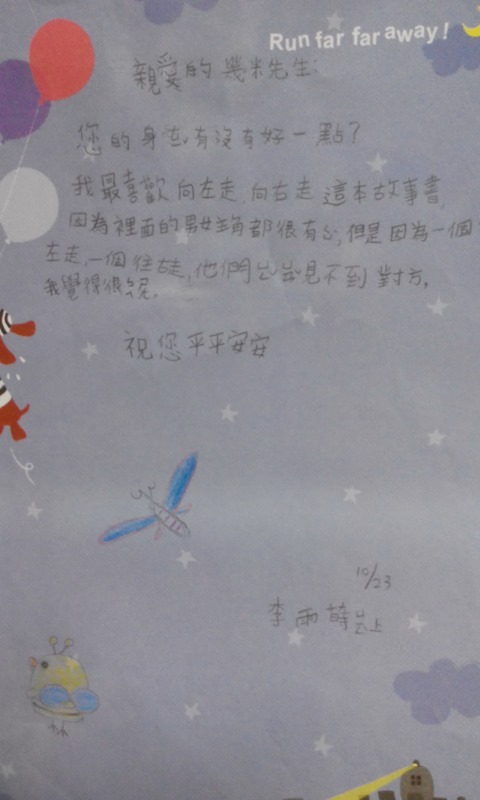 Run far far away!
親愛的 幾米先生:
您的身体有沒有好一點?
我最喜歡向左走,向右走 這本故事書,
因為裡面的男女主角都很有心,但是因為一個
左走,一個往右走,他們 見不到對方,
我覺得很
祝您平平安安
10/23
李雨 上